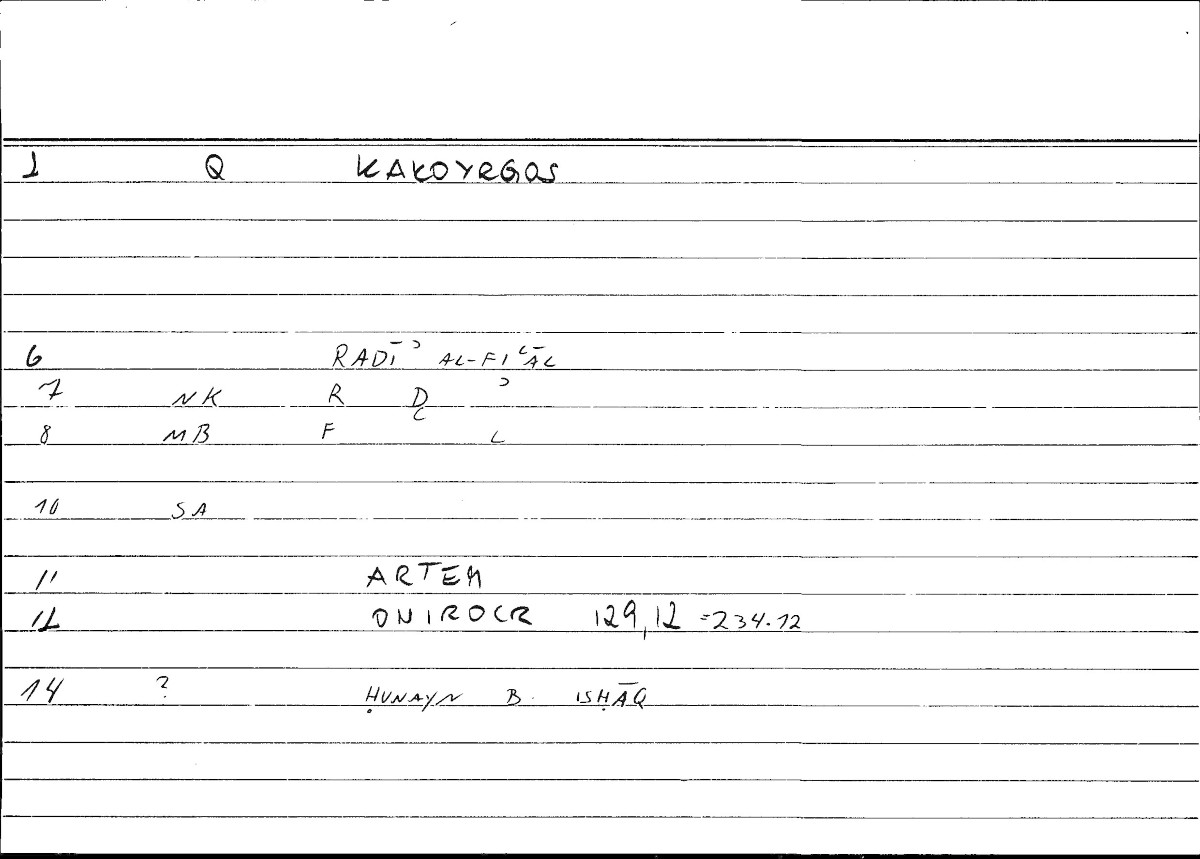 1 Q KAKOYRGOS
6 RADĪʾ AL-FIʿĀL
7 NK R Ḍ ʾ
8 MB F ʿ L
10 SA
11 ARTEM
12 ONIROCR 129,12 =234.12
14 ? ḤUNAYN B. ISḤĀQ